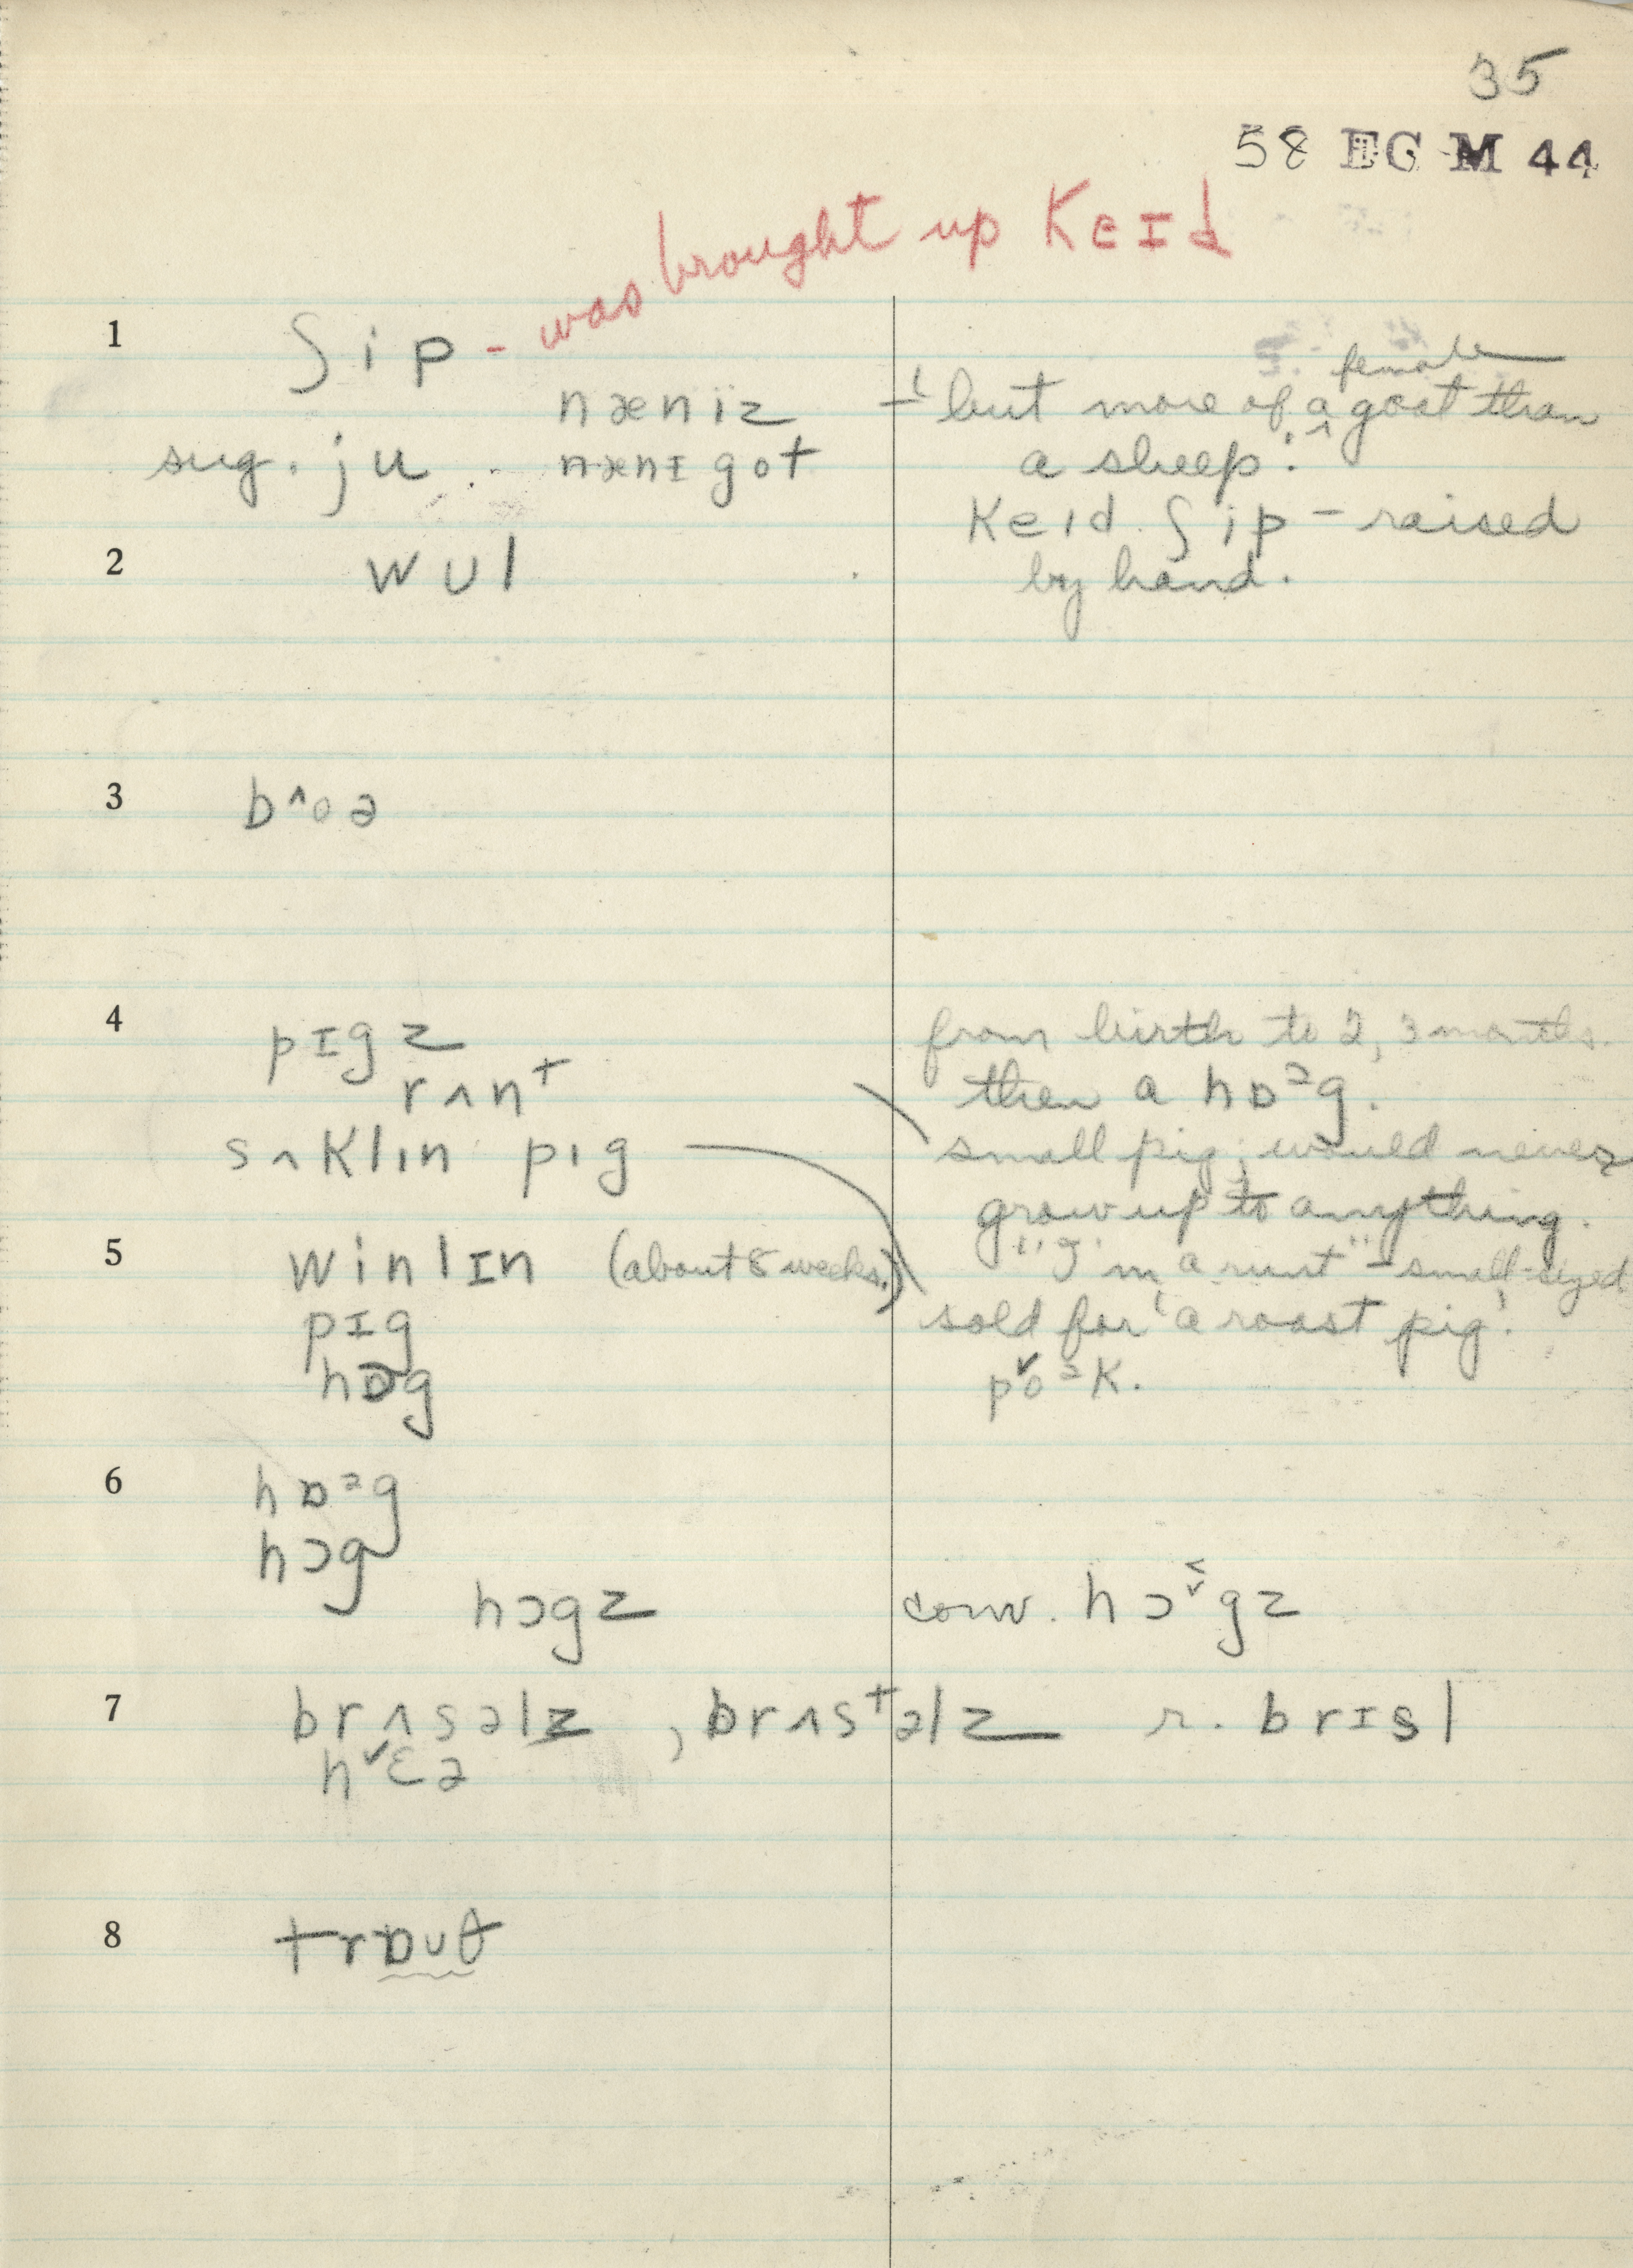 35
58 EG M 44
- was brought up keɪd
1 ʃip
næniz - 'but more of a ^ female goat than
sug. ju nænɪ got a sheep.'
keɪd ʃip - raised
2 wʊl by hand.
3 b^oə
4 pɪgz from birth to 2, 3 months.
rʌnt then a hɒᵊg.
sʌklɪn pɪg small pig; would never
grow up to anything.
5 winlɪn (about 8 weeks.) "I'm a runt" - small-sized
pɪg sold for 'a roast pig'.
hɒg pˇoᵊk.
6 hɒᵊg
hɔg
hɔgz conv. hɔˇgz
7 brʌsəlz , brʌstəlz r. brɪsl
hˇɛə
8 trɒʊθ